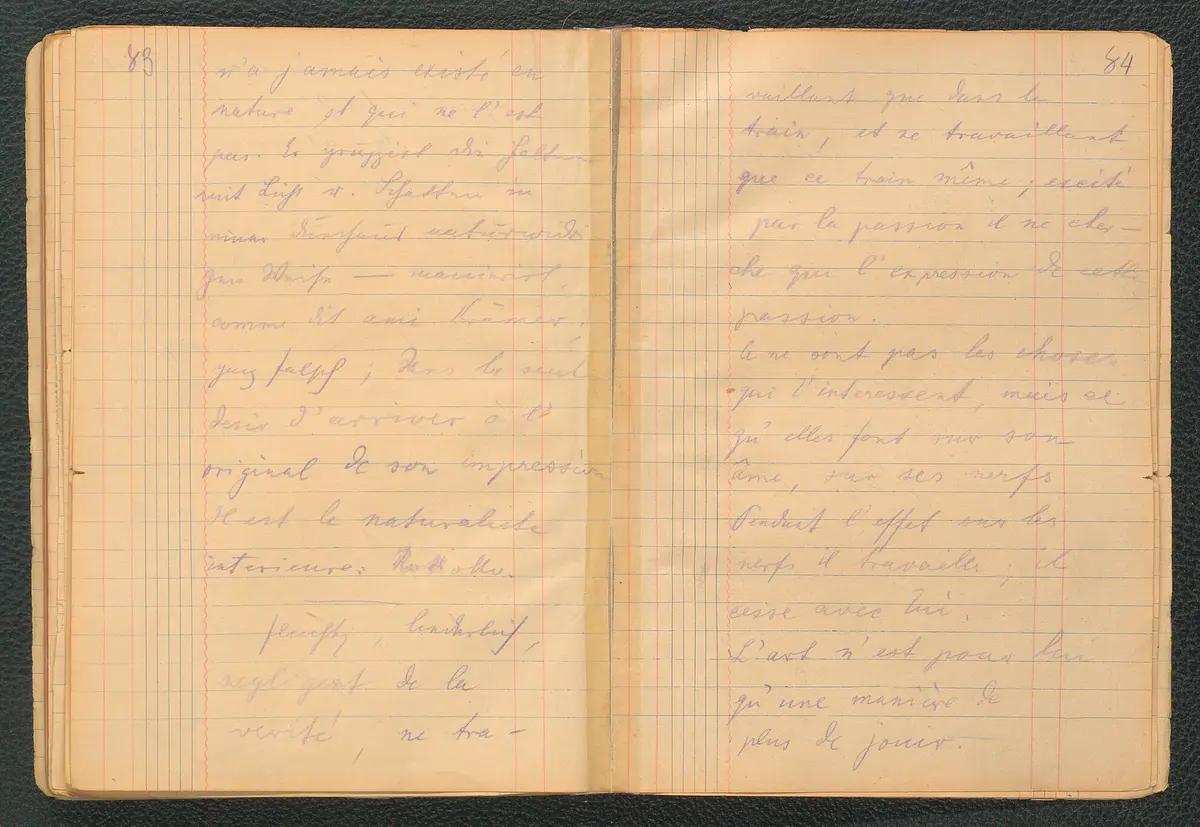 83
n'a jamais existé en
nature et qui ne l'est
pas. Er gruppirt die Falten
mit Licht u. Schatten in
einer durchaus naturwidri
gen Weise — maniriert,
comme dit ami Krämer,
ganz falsch; dans le seul
desir d'arriver à l'
original de son impression
Il est le naturaliste
interieure:
flüchtig, liederlich,
negligent de la
verité, ne tra-
84
vaillant que dans le
train, et ne travaillant
que ce train même; excité
par la passion il ne cher-
che que l'expression de cette
passion.
Ce ne sont pas les choses
qui l'interessent, mais ce
qu'elles font sur son
âme, sur ses nerfs
Pendant l'effet sur les
nerfs il travaille; il
cesse avec lui.
L'art n'est pour lui
qu'une manière de
plus de jouir.